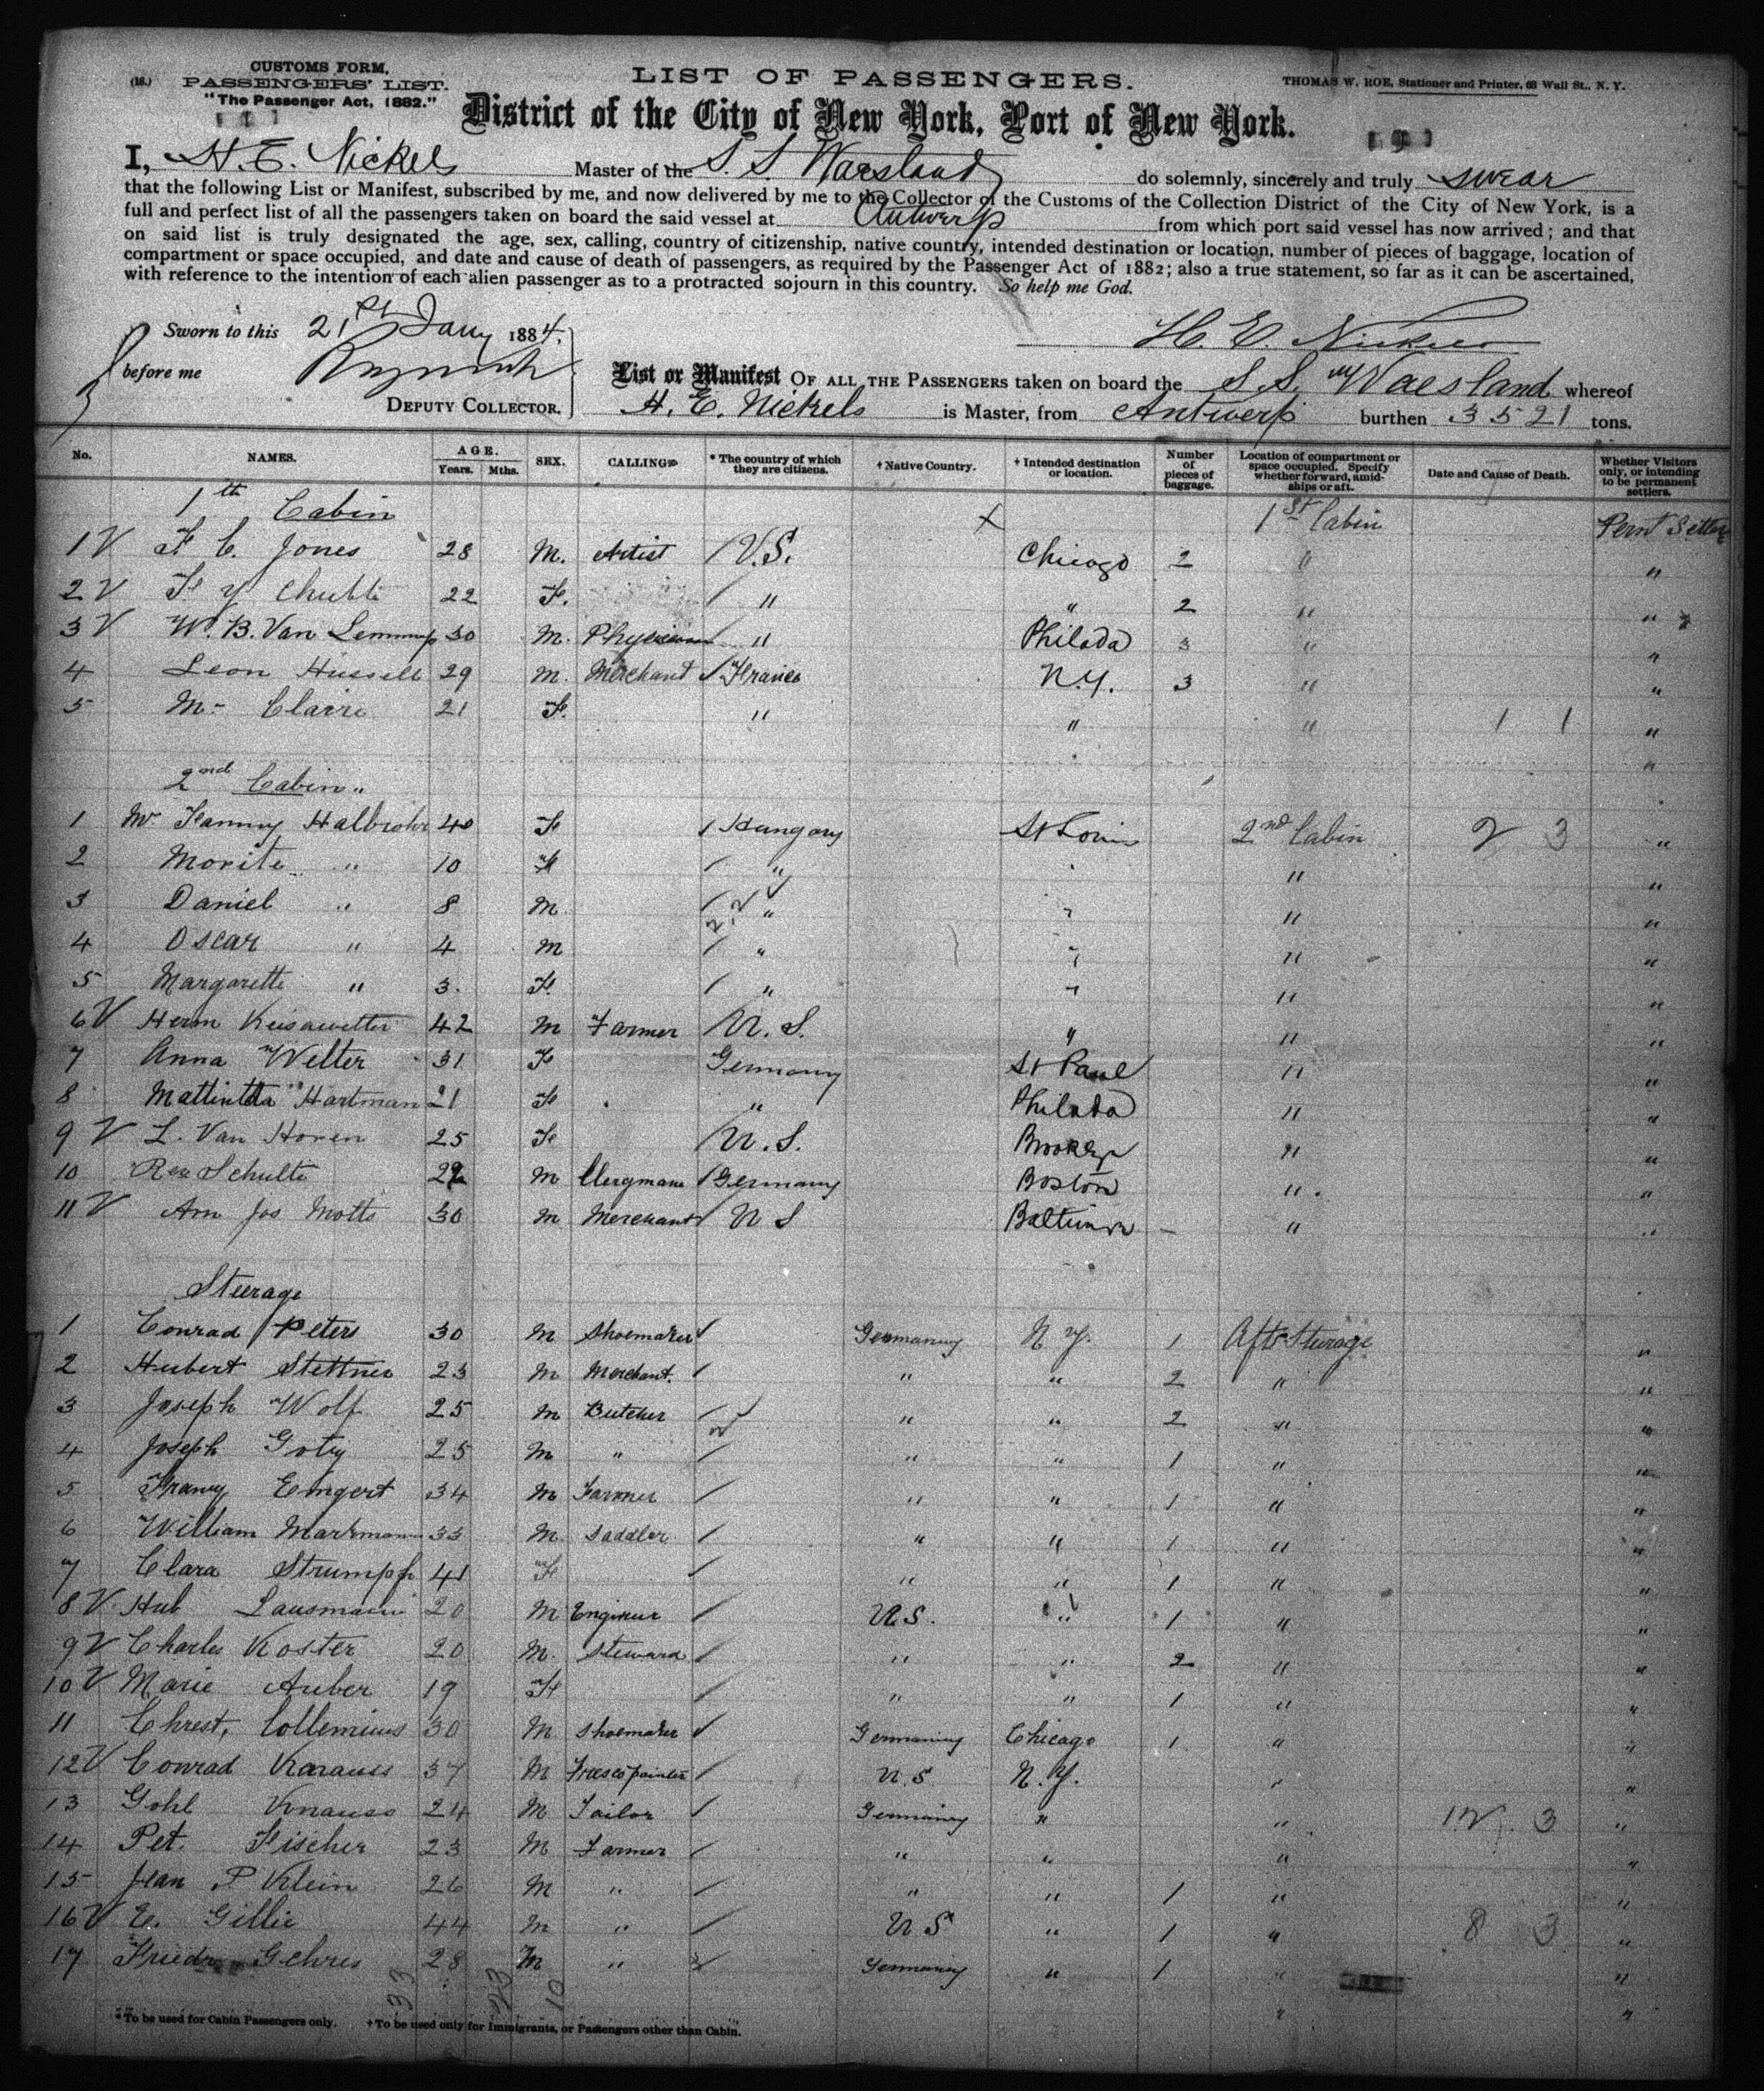 (18.) CUSTOMS FORM, PASSENGERS' LIST. "The Passenger Act, 1882."
LIST OF PASSENGERS.
THOMAS W. ROE, Stationer and Printer, 63 Wall St., N. Y.
District of the City of New York, Port of New York.
I, H. E. Nickels Master of the S. S. Waesland do solemnly, sincerely and truly swear
that the following List or Manifest, subscribed by me, and now delivered by me to the Collector of the Customs of the Collection District of the City of New York, is a
full and perfect list of all the passengers taken on board the said vessel at Antwerp from which port said vessel has now arrived; and that
on said list is truly designated the age, sex, calling, country of citizenship, native country, intended destination or location, number of pieces of baggage, location of
compartment or space occupied, and date and cause of death of passengers, as required by the Passenger Act of 1882; also a true statement, so far as it can be ascertained,
with reference to the intention of each alien passenger as to a protracted sojourn in this country. So help me God.
Sworn to this 21st Jany 1884,
H. E. Nickels
before me
DEPUTY COLLECTOR.
List or Manifest OF ALL THE PASSENGERS taken on board the S. S. Waesland whereof
H. E. Nickels is Master, from Antwerp burthen 3521 tons.
No. NAMES. AGE. Years. Mths. SEX. CALLING * The country of which they are citizens. † Native Country. † Intended destination or location. Number of pieces of baggage. Location of compartment or space occupied. Specify whether forward, amidships or aft. Date and Cause of Death. Whether Visitors only, or intending to be permanent settlers.
1th Cabin 1st Cabin Permt Settler
1 V F C. Jones 28 M. Artist / U.S. Chicago 2 " "
2 V F Y Chubb 22 F. / " " 2 " "
3 V W. B. Van Lemmep 30 M. Physician " Philada 3 " "
4 Leon Hussell 29 M. Merchant / France N.Y. 3 " "
5 M- Claire 21 F. " " " 1 1 "
"
2nd Cabin "
1 Mr Fanny 40 F / Hungary St Louis 2nd Cabin 2 3 "
2 Moritz " 10 / " " "
3 Daniel " 8 M / " " "
4 Oscar " 4 M / " " "
5 Margarette " 3. F. / " " "
6 V Herm 42 M Farmer / U. S. " " "
7 Anna Welter 31 F Germany St Paul " "
8 Hartman 21 F " Philada " "
9 V L. Van Horen 25 F / U. S. Brooklyn " "
10 Rev Schulte M Clergman / Germany Boston " "
11 V Arn Jos Motts 30 M Merchant / U S Baltimore - " "
Steerage
1 Conrad Peters 30 M Shoemaker / Germany N. Y. 1 Aft Steerage "
2 Hubert Stettner 23 M Merchant. / " " 2 " "
3 Joseph Wolf 25 M Butcher / " " 2 " "
4 Joseph Goty 25 M " / " " 1 " "
5 Frany Emgert 34 M Farmer / " " 1 " "
6 William Markmann 33 M. Saddler / " " 1 " "
7 Clara Strumpf 41 F / " " 1 " "
8 V Hub Lausmann 20 M Engineer / U.S. " 1 " "
9 V Charles Koster 20 M. Steward / " " 2 " "
10 V Marie Auber 19 F / " " 1 " "
11 Chrest, Collemius 30 M Shoemaker / Germany Chicago 1 " "
12 V Conrad Krauss 37 M Fresco painter / U.S N.Y. " "
13 Gohl Knauss 24 M Tailor / Germany " " 12 3 "
14 Pet. Fischer 23 M Farmer / " " " "
15 Jean P Klein 26 M " / " " 1 " "
16 V E. Gillie 44 M " / U S " 1 " 8 3 "
17 Friedr Gehres 28 M " / Germany " 1 " "
33 10 " "
* To be used for Cabin Passengers only. † To be used only for Immigrants, or Passengers other than Cabin.